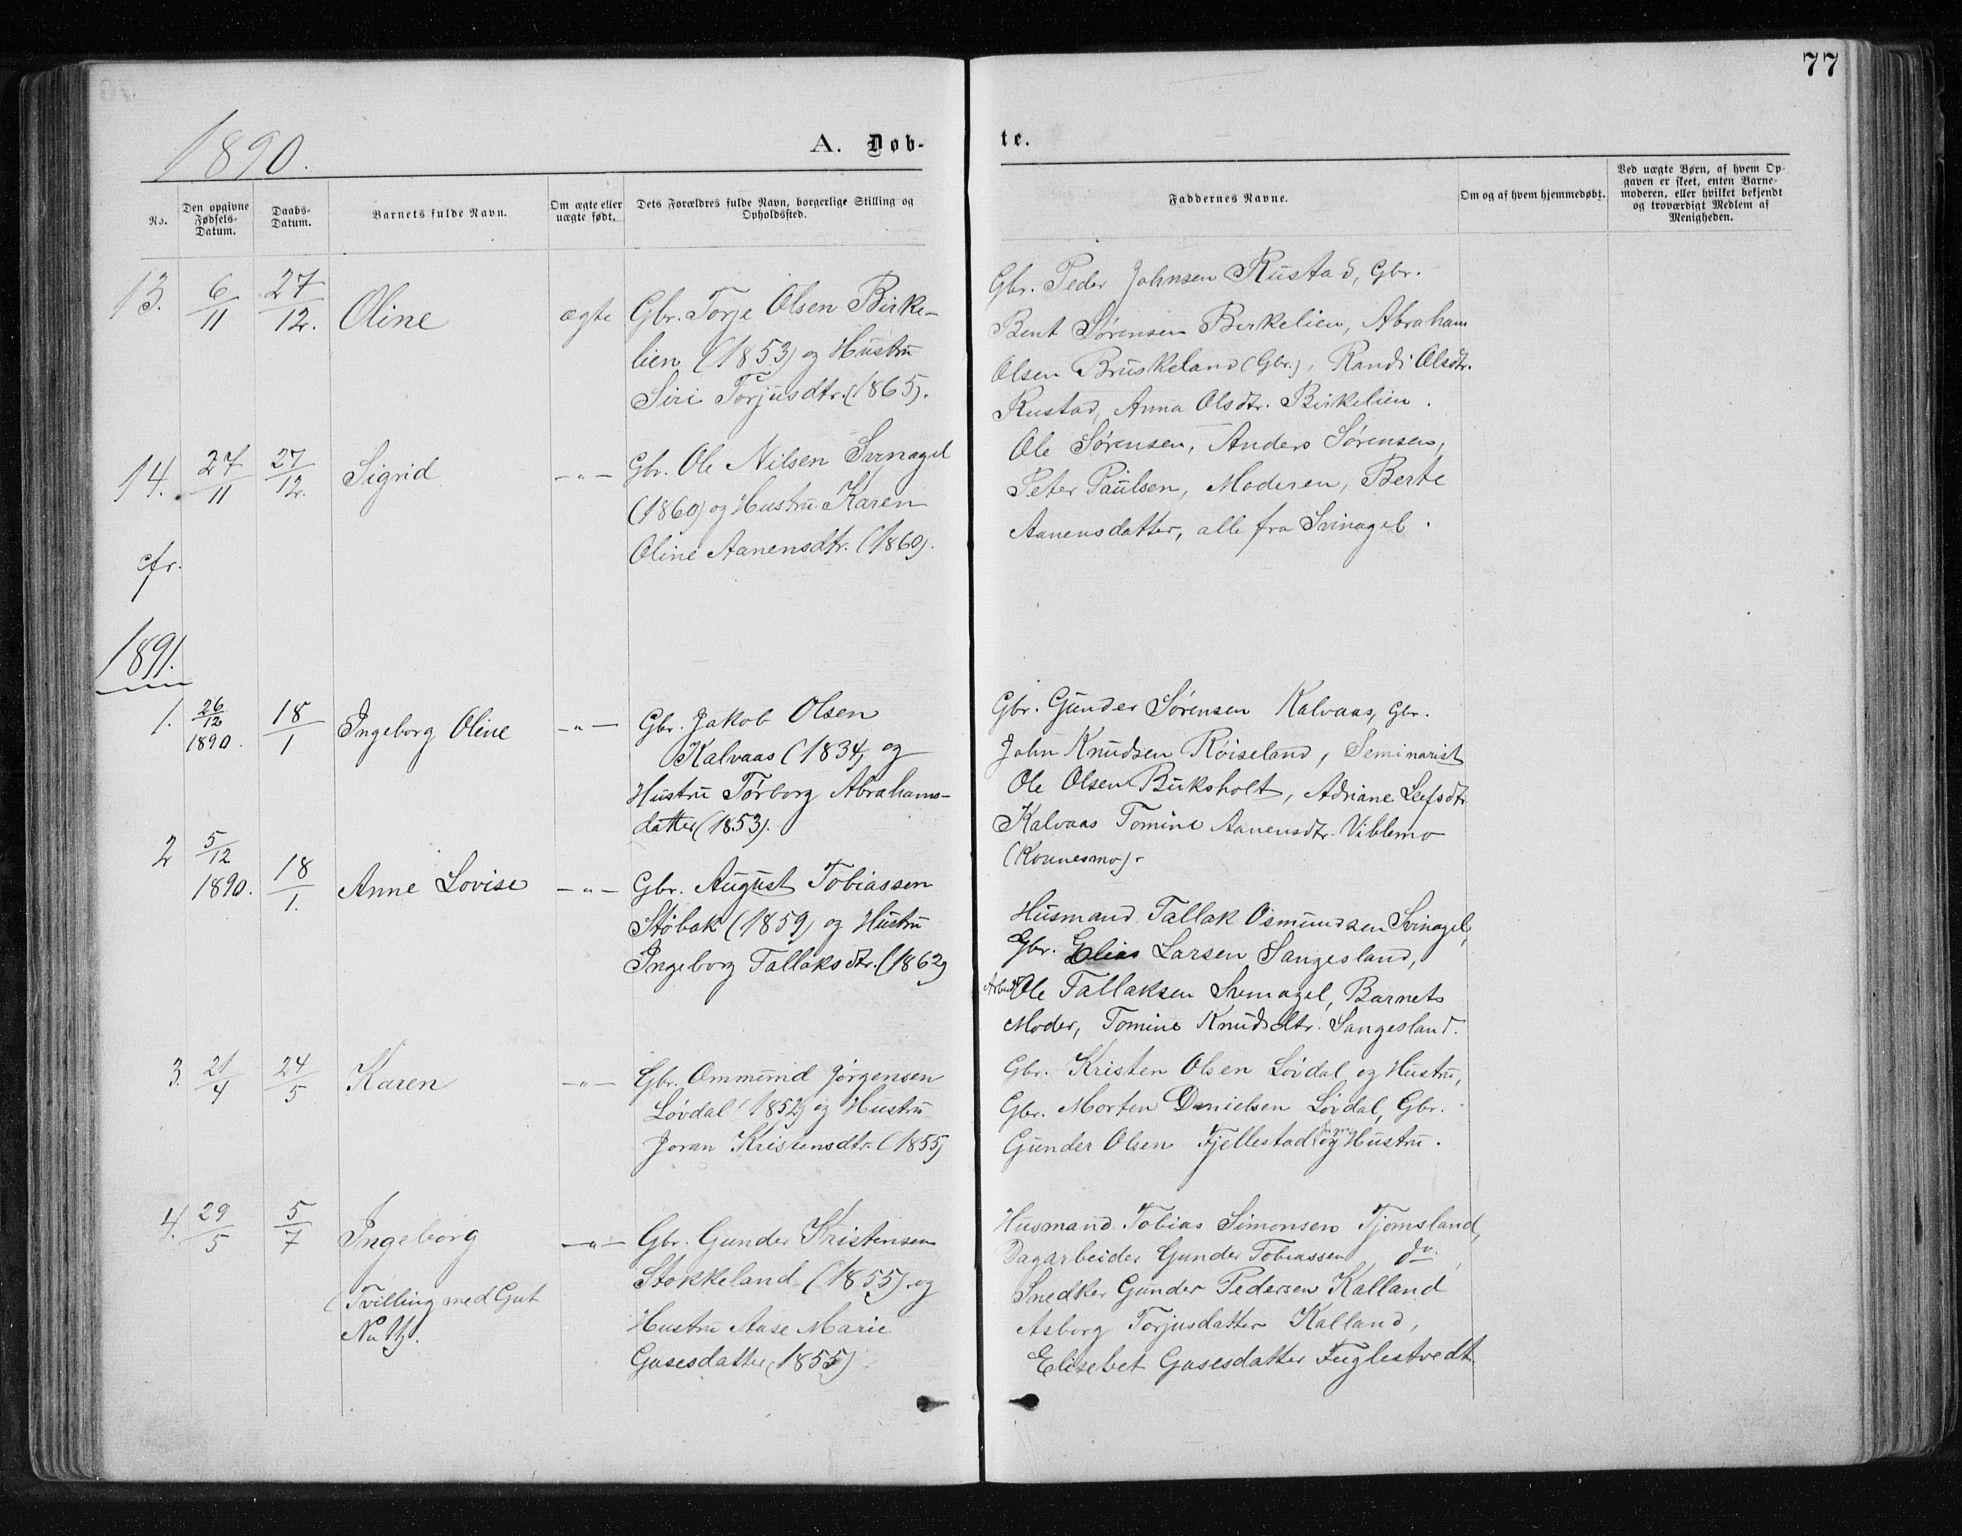 77
1890.
A. Døb-
te.
No.
Den opgivne Fødsels-Datum.
Daabs-Datum.
Barnets fulde Navn.
Om ægte eller uægte født.
Dets Forældres fulde Navn, borgerlige Stilling og Opholdssted.
Faddernes Navne.
Om og af hvem hjemmedøbt.
Ved uægte Børn, af hvem Op-
gaven er skeet, enten Barne-
moderen, eller hvilket bekjendt
og troværdigt Medlem af
Menigheden.
13. 6/11 27/12. Oline ægte Gbr. Torje Olsen Birke-
lien (1853) og Hustru
Siri Torjusdtr. (1865).
Gbr. Peder Johnsen Rustad, Gbr.
Bent Sørensen Birkelien, Abraham
Olsen Bruskeland (Gbr.), Randi Olsdtr.
Rustad, Anna Olsdtr. Birkelien.
14. 27/11 27/12. Sigrid —„— Gbr. Ole Nilsen Svinagel
(1860) og Hustru Karen
Oline Aanensdtr. (1860).
Ole Sørensen, Anders Sørensen,
Peter Paulsen, Moderen, Berte
Aanensdatter, alle fra Svinagel.
cfr.
1891.
1. 26/12 1890. 18/1 Ingeborg Oline —„— Gbr. Jakob Olsen
Kalvaas (1834) og
Hustru Torborg Abrahams-
datter (1853).
Gbr. Gunder Sørensen Kalvaas, Gbr.
John Knudsen Røiseland, Seminarist
Ole Olsen Birksholt, Adriane Leifsdtr.
Kalvaas Tomine Aanensdtr. Viblemo
(Konnesmo).
2 5/12 1890. 18/1. Anne Lovise —„— Gbr. August Tobiassen
Støbak (1859) og Hustru
Ingeborg Tallaksdtr. (1862)
Husmand Tallak Osmundsen Svinagel,
Gbr. Elias Larsen Sangesland,
Ole Tallaksen Svinagel, Barnets
Moder, Tomine Knudsdtr. Sangesland.
3. 21/4 24/5 Karen —„— Gbr. Ommund Jørgensen
Løvdal (1852) og Hustru
Joran Kristensdtr. (1855)
Gbr. Kristen Olsen Løvdal og Hustru,
Gbr. Morten Danielsen Løvdal, Gbr.
Gunder Olsen Fjellestad og Hustru.
4. 29/5 5/7 Ingeborg —„— Gbr. Gunder Kristensen
(Tvilling med Gut
No 4).
Stokkeland (1855) og
Hustru Aase Marie
Gasesdatter (1855)
Husmand Tobias Simonsen Tjomsland,
Dagarbeider Gunder Tobiassen do,
Snedker Gunder Pedersen Kalland
Asborg Torjusdatter Kalland,
Elisebet Gasesdatter Fuglestvedt